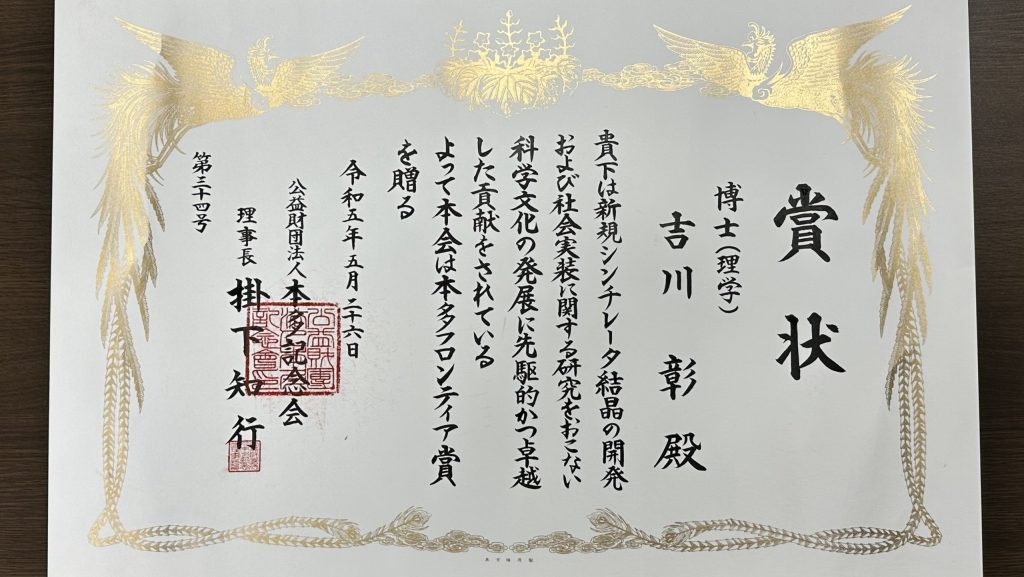 賞状
博士(理学)
吉川 彰 殿
貴下は新規シンチレータ結晶の開発
および社会実装に関する研究をおこない
科学文化の発展に先駆的かつ卓越
した貢献をされている
よって本会は本多フロンティア賞
を贈る
令和五年五月二十六日
公益財団法人本多記念会
理事長 掛下知行
第三十四号